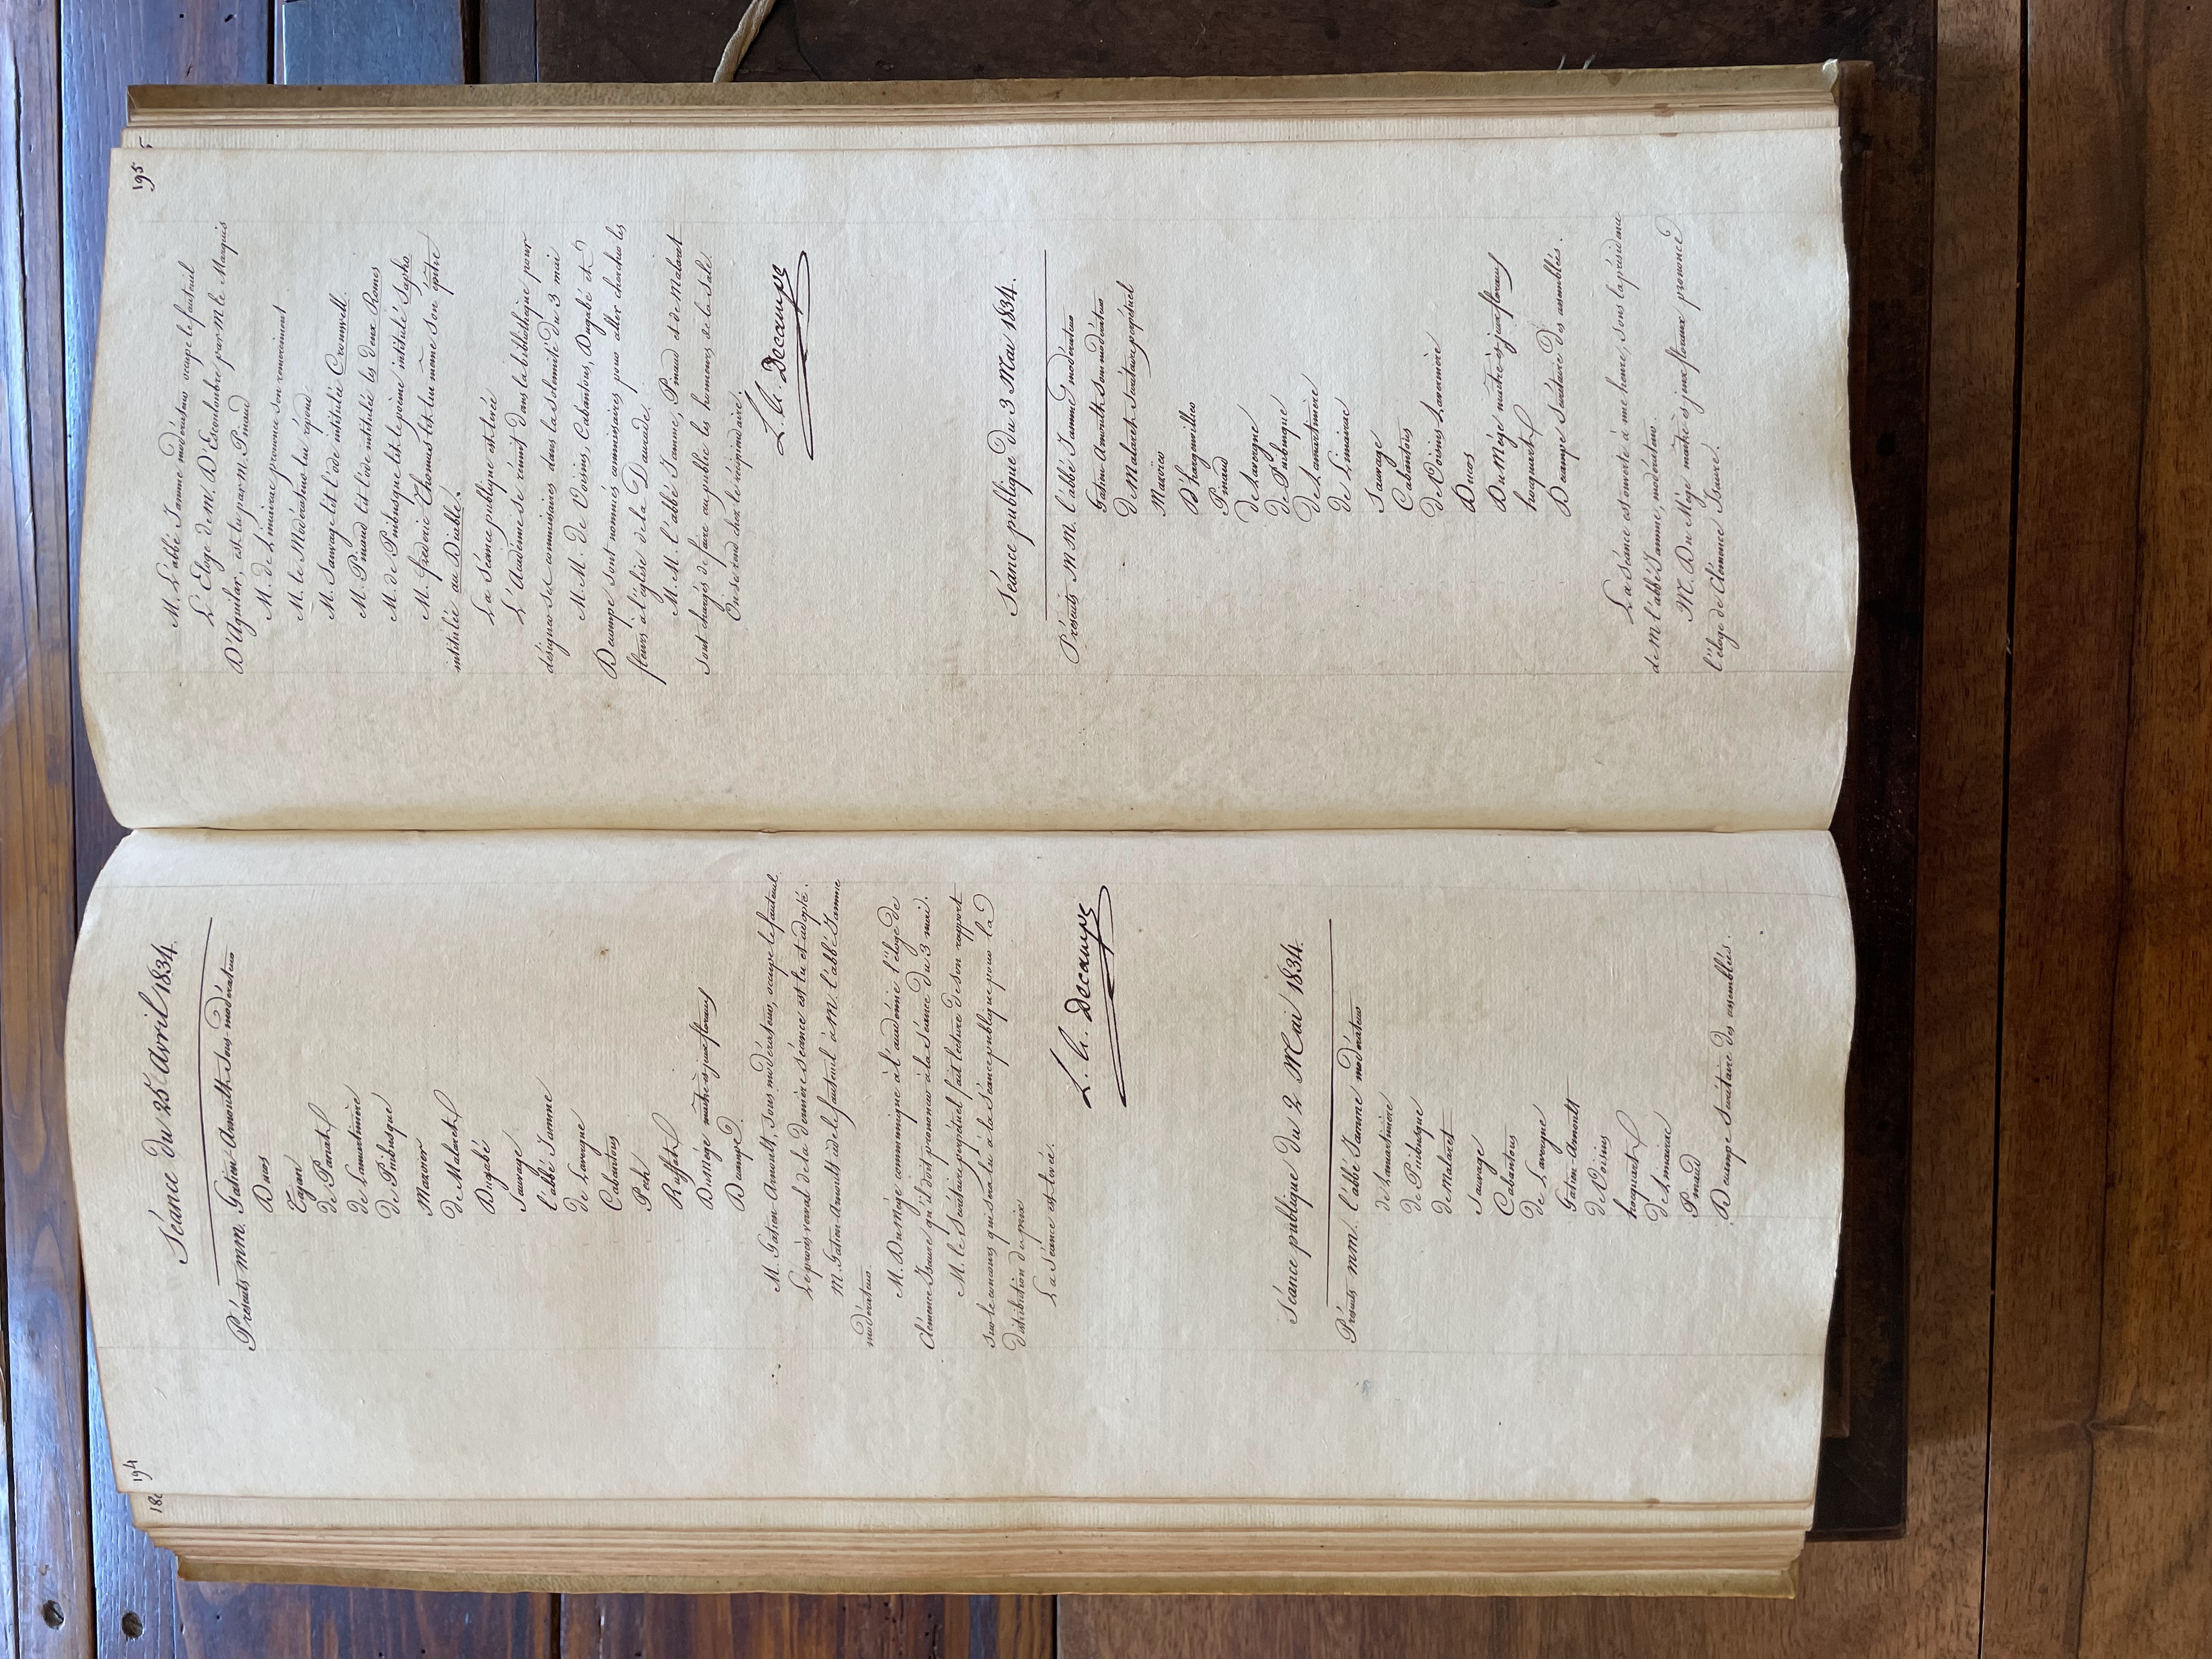 194
Séance du 25 Avril 1834.
Présents mm. Gatien-Arnoult sous-modérateur
Ducos
Tajan
de Panat
de Lamartinière
de Puibusque
Marvier
de Malaret
Dugabé
Sauvage
l'abbé Jamme
de Lavergne
Cabantous
Pech
Ruffat
DuMège maître ès jeux floraux
Decampe
M. Gatien-Arnoult, sous modérateur, occupe le fauteuil
Le procès verbal de la dernière séance est lu et adopté.
M. Gatien-Arnoult cède le fauteuil à M. l'abbé Jamme
modérateur.
M. DuMège communique à l'académie l'éloge de
Clémence Isaure qu'il doit prononcer à la séance du 3 mai.
M. le Secrétaire perpétuel fait lecture de son rapport
sur le concours qui sera lu à la séance publique pour la
distribution des prix
La Séance est levée.
L. A. Decamps
Séance publique du 2 Mai 1834.
Présents mm. l'abbé Jamme modérateur
de Lamartinière
de Puibusque
de Malaret
Sauvage
Cabantous
de Lavergne
Gatien-Arnoult
de Voisins
hocquart
de Limairac
Pinaud
Decampe Secrétaire des assemblées.
195
M. L'abbé Jamme modérateur occupe le fauteuil
L'Eloge de M. D'Escouloubre par M. le Marquis
D'Aguilar, est lu par M. Pinaud
M. de Limairac prononce son remerciment
M. le Modérateur lui répond.
M. Sauvage lit l'ode intitulée Cromwell.
M. Pinaud lit l'ode intitulée les deux Romes
M. de Puibusque lit le poème intitulé Sapho
M. frédéric Thomas lit lui même son épître
intitulée au Diable.
La Séance publique est levée
L'Académie se réunit dans la bibliothèque pour
désigner ses commissaires dans la solemnité du 3 mai
M. M. de Voisins, Cabantous, Dugabé et
Decampe sont nommés commissaires pour aller chercher les
fleurs à l'église de la Daurade.
M. M. l'abbé Jamme, Pinaud et de Malaret
sont chargés de faire au public les honneurs de la Salle.
On se rend chez le récipiendaire.
L. A. Decamps
Séance publique du 3 Mai 1834.
Présents M M. l'abbé Jamme modérateur
Gatien-Arnoult Sous modérateur
de Malaret Secrétaire perpétuel
D'hargenvillier
Pinaud
de Lavergne
de Puibusque
de Lamartinière
de Limairac
Sauvage
Cabantous
de Voisins Lavernière
Ducos
Du Mège maître ès jeux floraux
hocquart
Decampe Secrétaire des assemblées.
La Séance est ouverte à une heure, sous la présidence
de M. l'abbé Jamme, modérateur.
M. Du Mège maître ès jeux floraux prononce
l'éloge de Clémence Isaure.